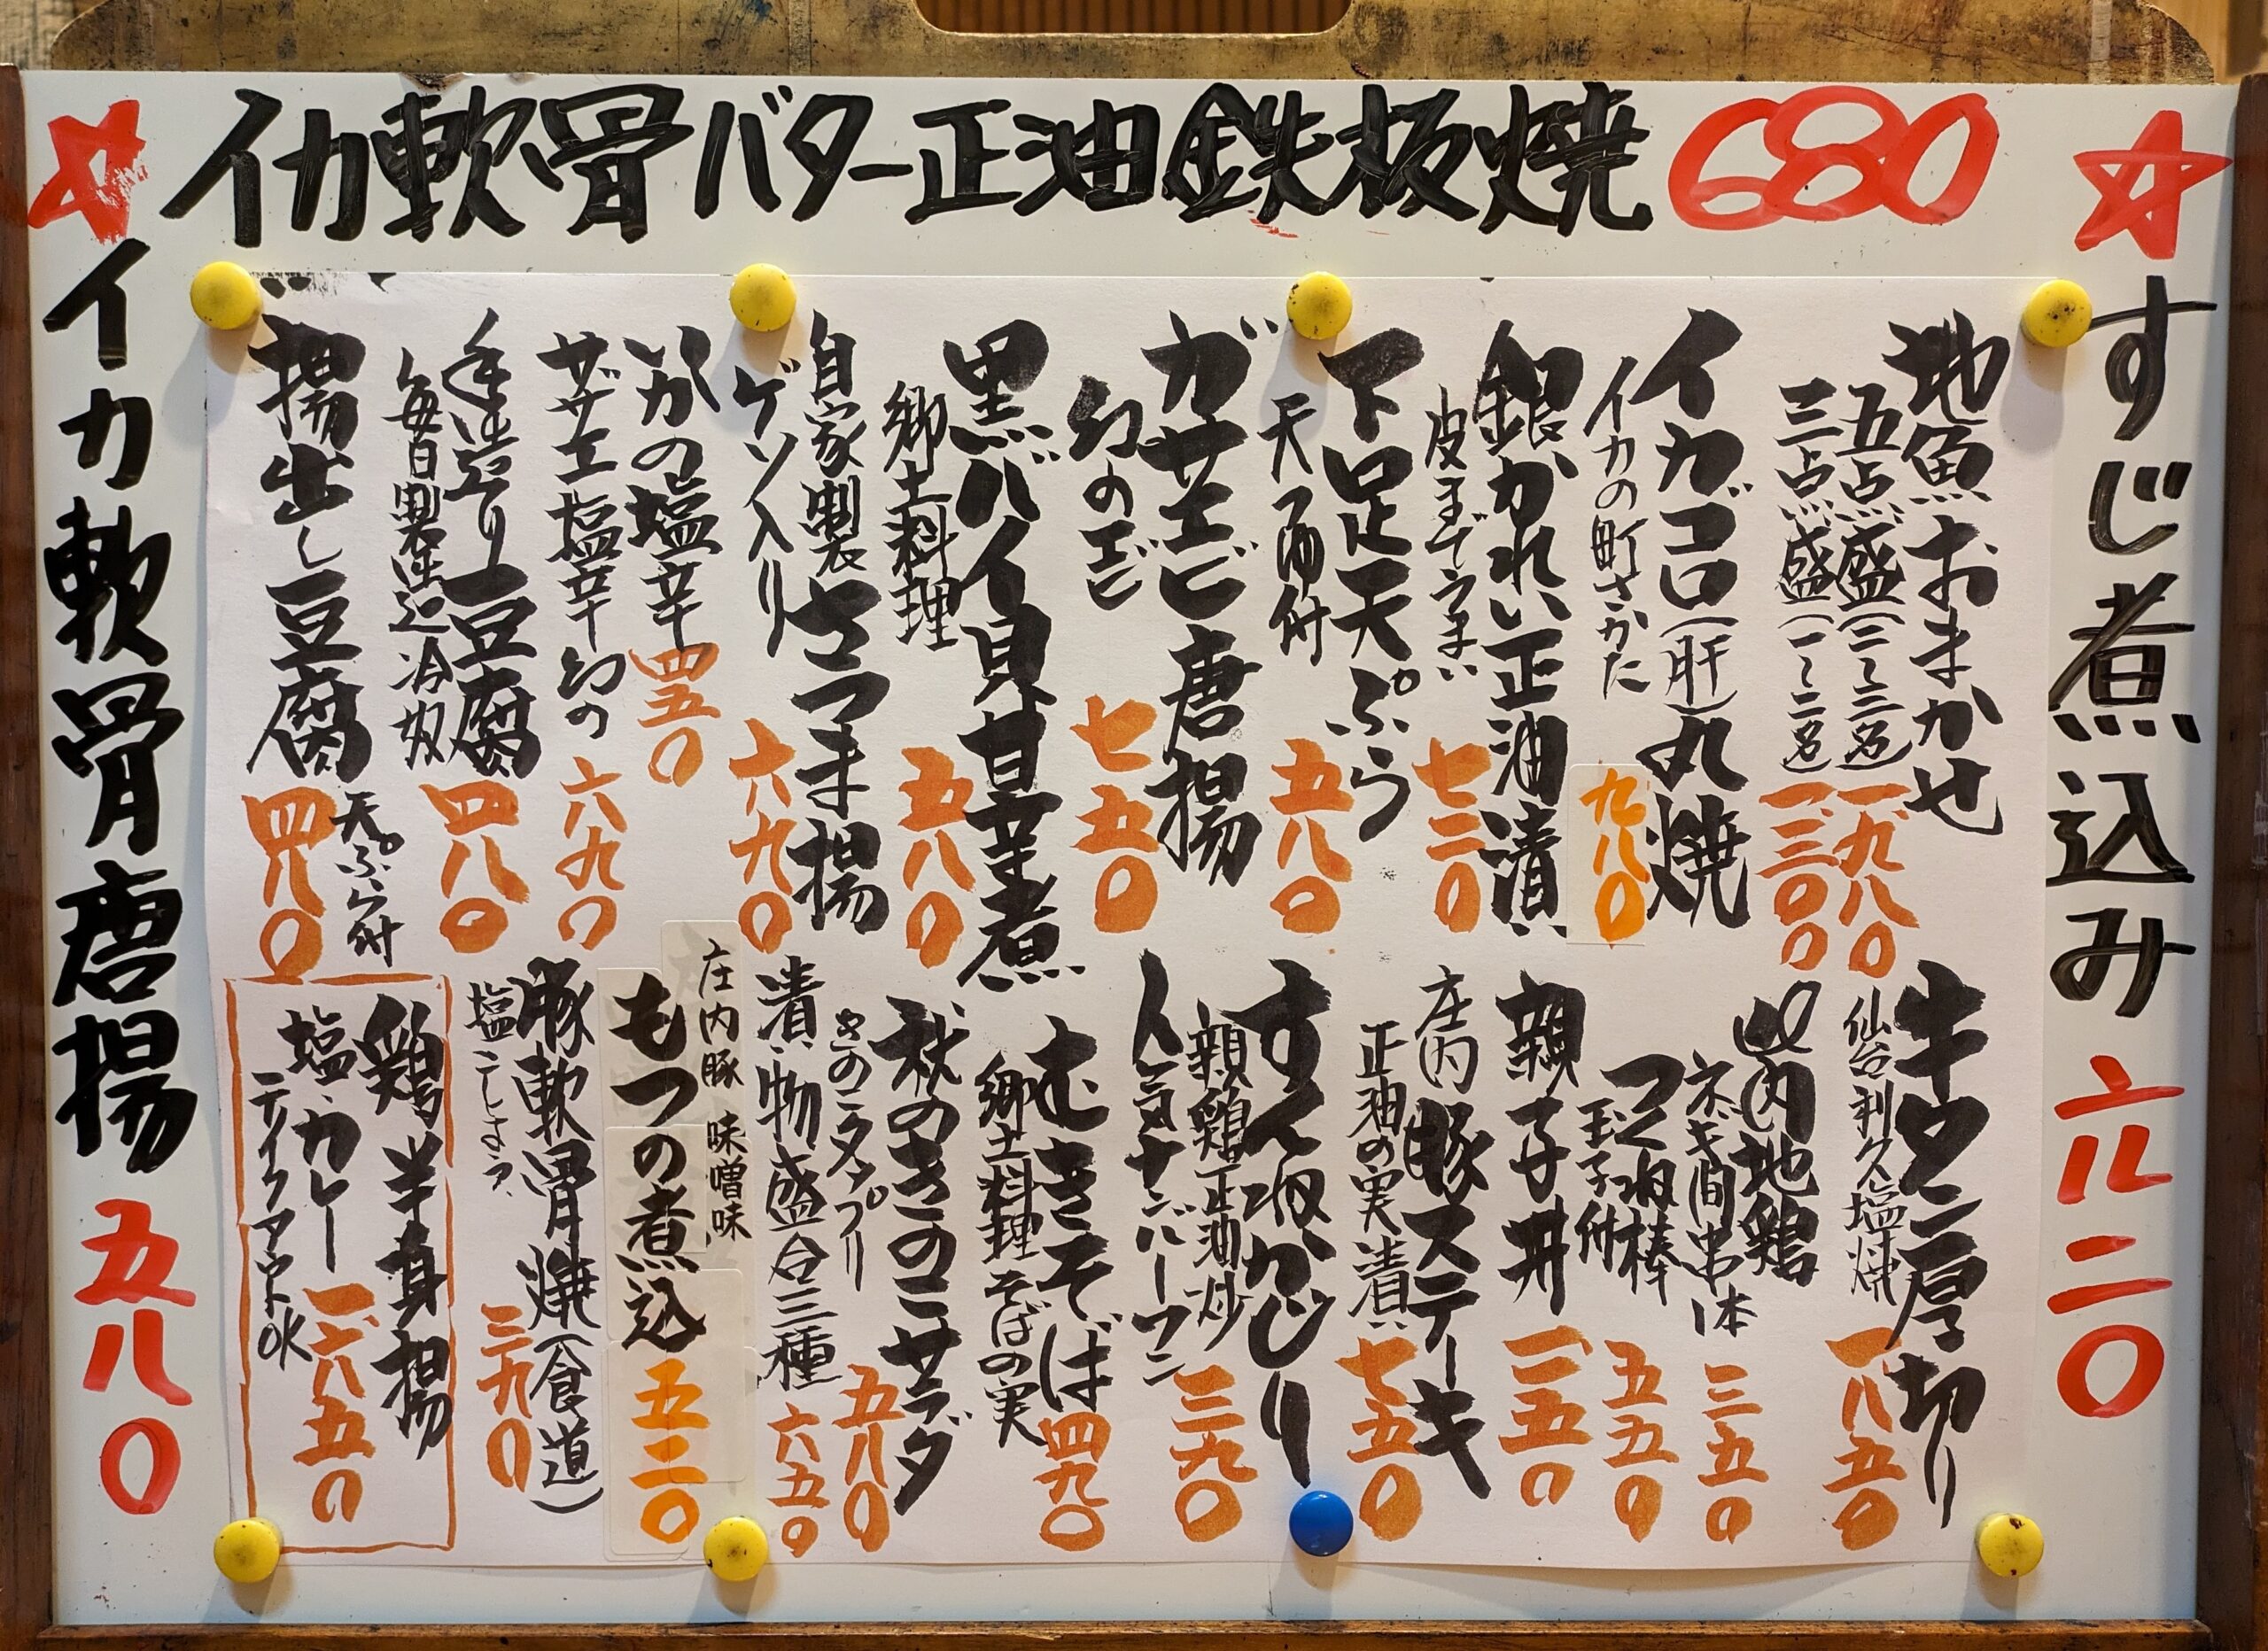 イカ軟骨バター正油鉄板焼 680
すじ煮込み 六二〇
地魚おまかせ
五点盛(二〜三名) 一九八〇
三点盛(一〜二名) 一三〇〇
イカゴロ(肝)丸焼
イカの町さかた 九八〇
銀がれい正油漬
皮までうまい 七二〇
下足天ぷら
天つゆ付 五八〇
ガサエビ唐揚
幻のエビ 七五〇
黒バイ貝甘辛煮
郷土料理 五八〇
自家製さつま揚
ゲソ入り 六九〇
いかの塩辛 四五〇
サザエ塩辛 幻の 六九〇
手造り豆腐
毎日製造 冷奴 四八〇
揚出し豆腐
天ぷら付 四八〇
牛タン厚切り
仙台利久塩焼 一八五〇
山内地鶏
ネギ間串一本 三五〇
つくね棒
玉子付 五五〇
親子丼 一一五〇
庄内豚ステーキ
正油の実漬 七五〇
すんねかじり
親鶏正油炒
人気ナンバーワン 三九〇
むきそば
郷土料理そばの実 四九〇
秋のきのこサラダ
きのこタプリー 五八〇
漬物盛合三種 六五〇
庄内豚 味噌味
もつの煮込 五二〇
豚軟骨焼(食道)
塩こしょう 三九〇
鶏半身揚
塩・カレー 一六五〇
テイクアウトOK
イカ軟骨唐揚 五八〇